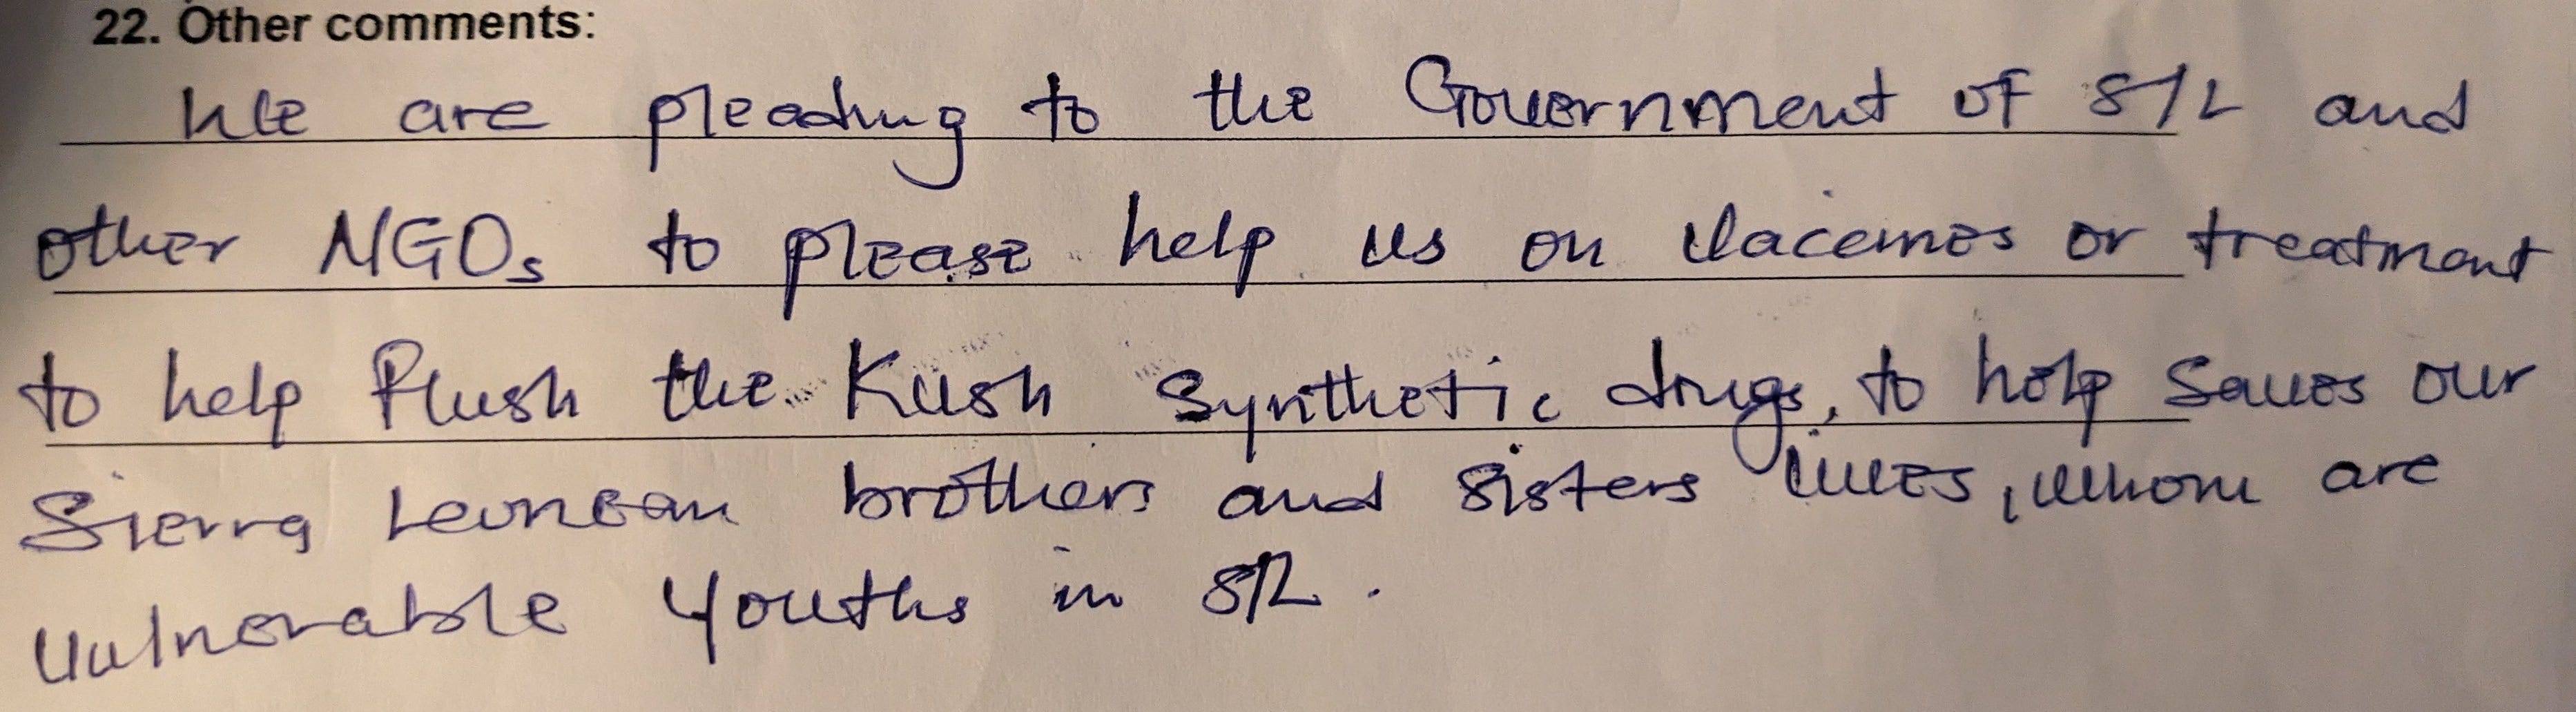 22. Other comments:
We are pleading to the Government of S/L and
other NGOs to please help us on Vacemes or treatment
to help flush the Kush Synthetic drugs, to help Saves our
Sierra Leonean brothers and sisters lives, whom are
Vulnerable Youths in S/L.